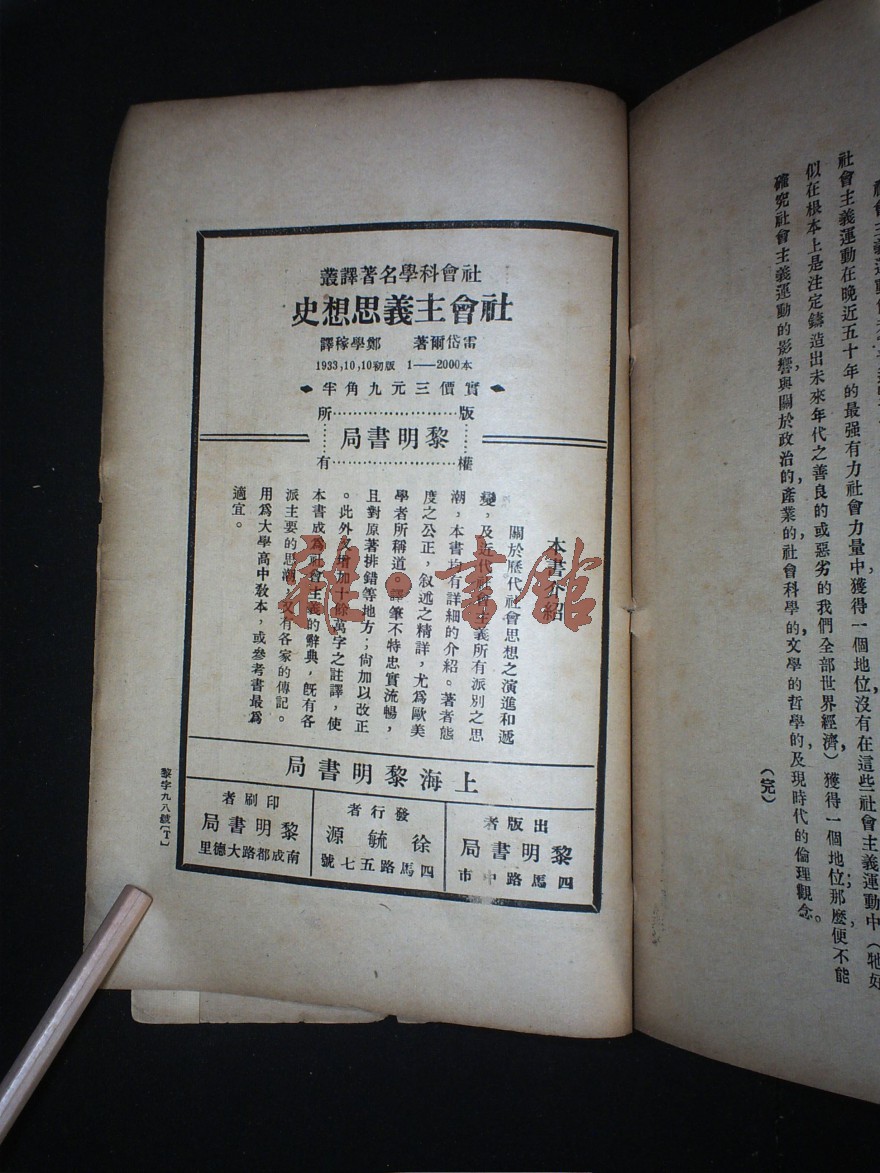 社會主義運動在晚近五十年的最强有力社會力量中獲得一個地位，沒有在這些社會主義運動中（牠好
似在根本上是注定鑄造出未來年代之善良的或惡劣的我們全部世界經濟）獲得一個地位；那麼便不能
確究社會主義運動的影響與關於政治的，產業的，社會科學的，文學的，哲學的，及現時代的倫理觀念。
（完）
社會科學名著譯叢
社會主義思想史
雷岱爾著 鄭學稼譯
1933，10，10初版 1——2000本
實價三元九角半
版……所
黎明書局
權……有
本書介紹
關於歷代社會思想之演進和遞
變，及近代社會主義所有派別之思
潮，本書均有詳細的介紹。著者態
度之公正，叙述之精詳，尤爲歐美
學者所稱道，譯筆不特忠實流暢，
且對原著排錯等地方；尙加以改正
。此外又增加十餘萬字之註譯，使
本書成爲社會主義的辭典，旣有各
派主要的思潮，又有各家的傳記。
用爲大學高中敎本，或參考書最爲
適宜。
上海黎明書局
出版者
黎明書局
四馬路中市
發行者
徐毓源
四馬路五七號
印刷者
黎明書局
南成都路大德里
黎字九八號〔I〕
雜·書館